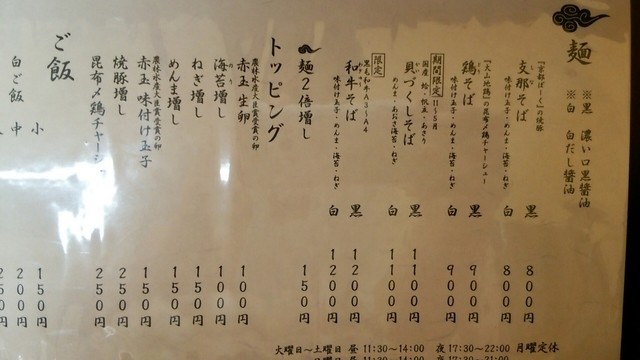 麺
※黒 濃い口黒醤油
※白 白だし醤油
『京都ぽーく』の焼豚
支那そば 黒 800円
味付け玉子・めんま・海苔・ねぎ 白 800円
『大山地鶏』の昆布〆鶏チャーシュー
鶏そば 黒 900円
味付け玉子・めんま・海苔・ねぎ 白 900円
期間限定 11〜5月
国産 蛤・帆立・あさり
貝づくしそば 黒 1100円
めんま・あおさ海苔・ねぎ 白 1100円
限定
黒毛和牛A3〜A4
和牛そば 黒 1200円
味付け玉子・めんま・海苔・ねぎ 白 1200円
麺2倍増し 150円
トッピング
農林水産大臣賞受賞の卵
赤玉 生卵 100円
海苔増し 100円
ねぎ増し 150円
めんま増し 150円
農林水産大臣賞受賞の卵
赤玉 味付け玉子 150円
焼豚増し 250円
昆布〆鶏チャーシュー 250円
ご飯
小 150円
白ご飯 中 200円
250円
火曜日〜土曜日 昼 11:30〜14:00 夜 17:30〜22:00 月曜定休